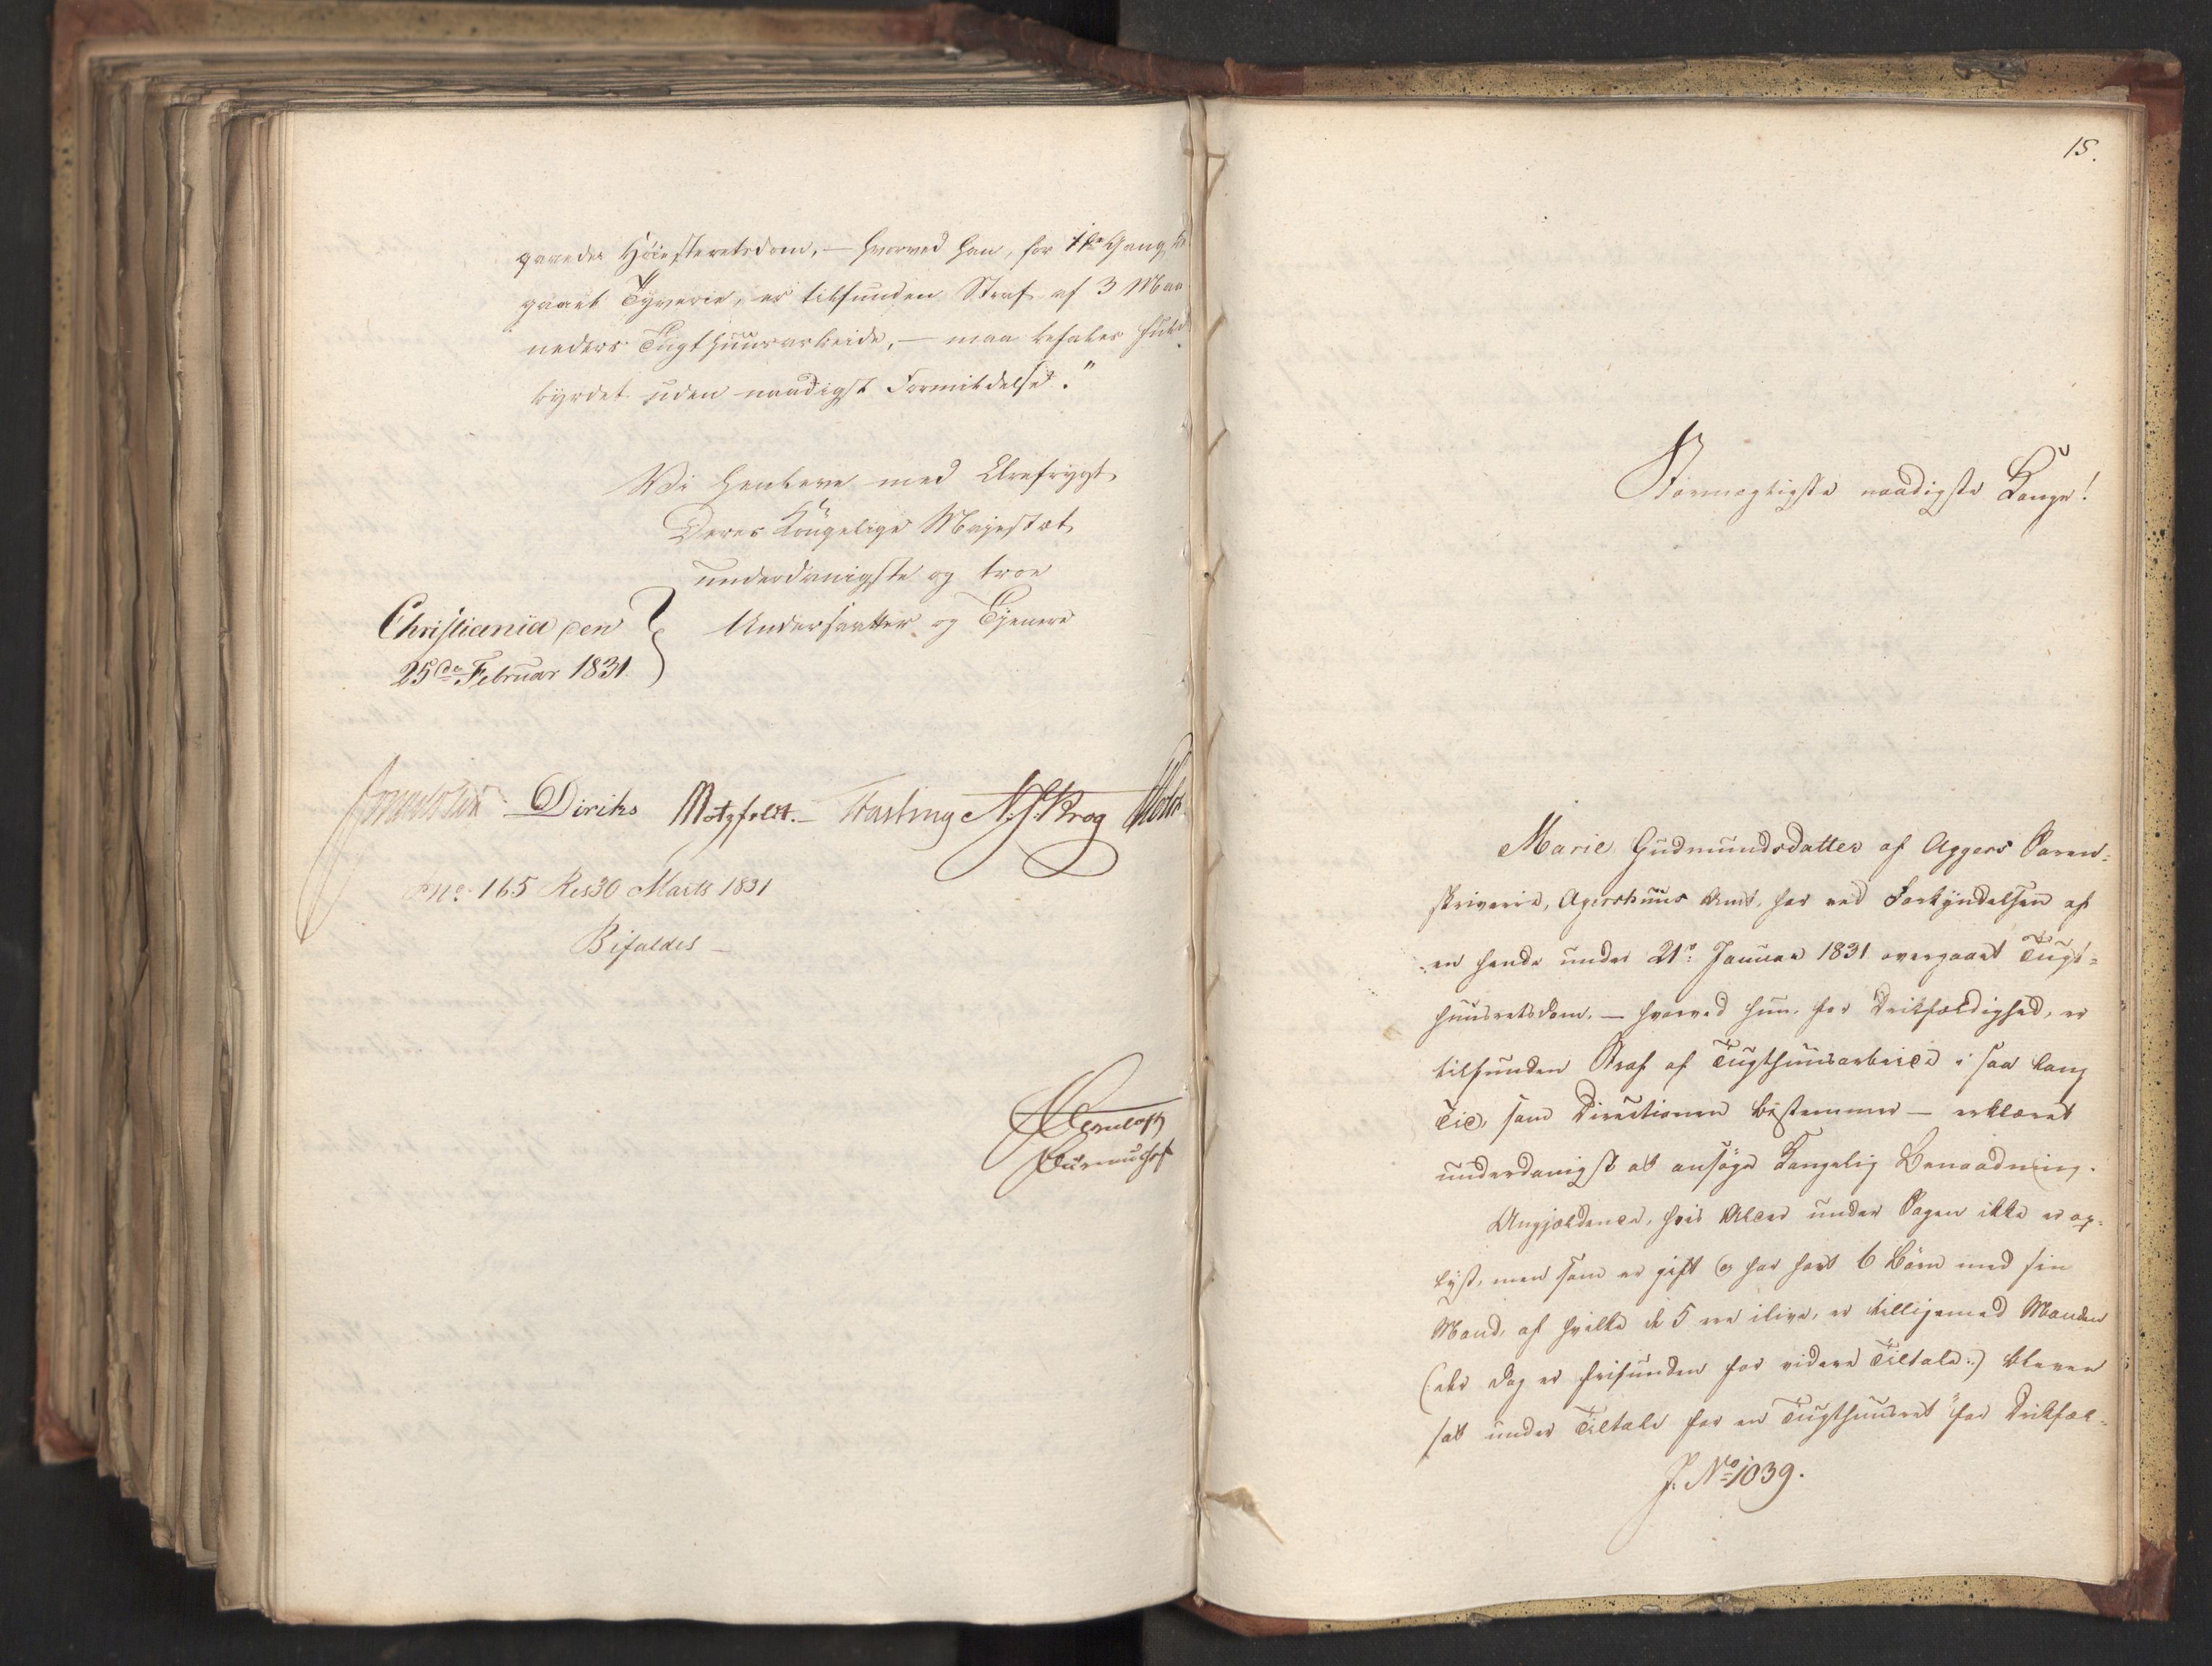 gaaede Høiesteretsdom, — hvorved han, for 1ste Gang be
gaaet Tyverie, er tilfunden Straf af 3 Maa
neders Tugthuusarbeide, — maa befales fuld
byrdet uden naadigst Formildelse."
Vi henleve med Ærefrygt
Deres Kongelige Majestæt
underdanigste og troe
Christiania den Undersaatter og Tjenere
25de Februar 1831
Diriks Motzfeldt. Fasting N. J. Krog
No. 165 Res 30 Marts 1831
Bifaldes —
15.
Stormægtigste naadigste Konge!
Marie Gudmundsdatter af Aggers Soren-
skriverie, Agershuus Amt, har ved Forkyndelsen af
en hende under 21de Januar 1831 overgaaet Tugt-
huusretsdom, — hvorved hun, for Drikfældighed, er
tilfunden Straf af Tugthuusarbeide i saa lang
Tid, som Directionen bestemmer — erklæret
underdanigst at ansøge Kongelig Benaadning.
Angjældende, hvis Alder under Sagen ikke er op-
lyst, men som er gift og har havt 6 Børn med sin
Mand, af hvilke de 5 ere ilive, er tilligemed Manden
(: der dog er frifunden for videre Tiltale :) bleven
sat under Tiltale for en Tugthuusret "for Drikfæl-
J. No 1039.